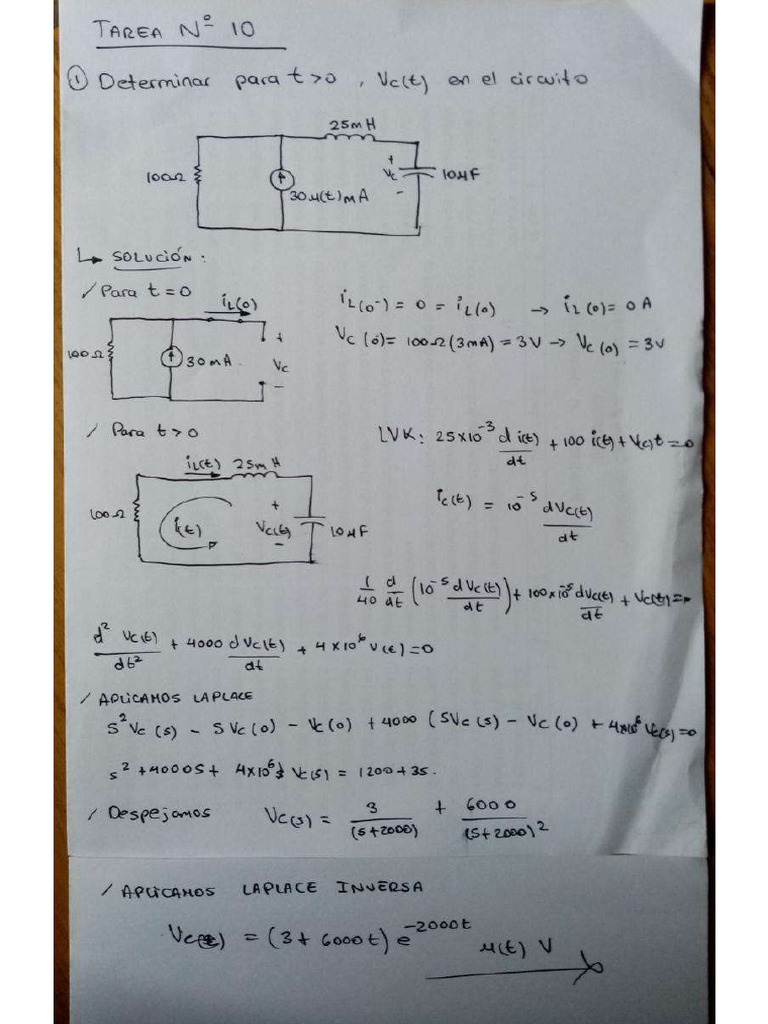 TAREA Nº 10
① Determinar para t>0 , Vc(t) en el circuito
25mH
100Ω
30μ(t)mA
+
Vc
-
10μF
↳ SOLUCIÓN :
/ Para t=0
iL(0)
100Ω
30mA
+
Vc
-
iL(0-) = 0 = iL(0) → iL(0)= 0 A
Vc(0)= 100Ω(3mA) = 3V → Vc(0) = 3V
/ Para t>0
iL(t) 25mH
100Ω
i(t)
+
Vc(t)
-
10μF
LVK: 25×10⁻³ d i(t)/dt + 100 i(t) + Vc)t = 0
ic(t) = 10⁻⁵ dVc(t)/dt
1/40 d/dt (10⁻⁵ dVc(t)/dt) + 100×10⁻⁵ dVc(t)/dt + Vc(t)=0
d² Vc(t)/dt² + 4000 dVc(t)/dt + 4×10⁶ V(t)=0
/ APLICAMOS LAPLACE
S²Vc(s) - SVc(0) - Vc(0) + 4000 (SVc(s) - Vc(0) + 4×10⁶ Vc(s)=0
s² +4000S+ 4×10⁶ Vc(s) = 1200+3s.
/ Despejamos Vc(s) = 3/(s+2000) + 6000/(s+2000)²
/ APLICAMOS LAPLACE INVERSA
Vc(t) = (3+6000t) e^-2000t μ(t) V